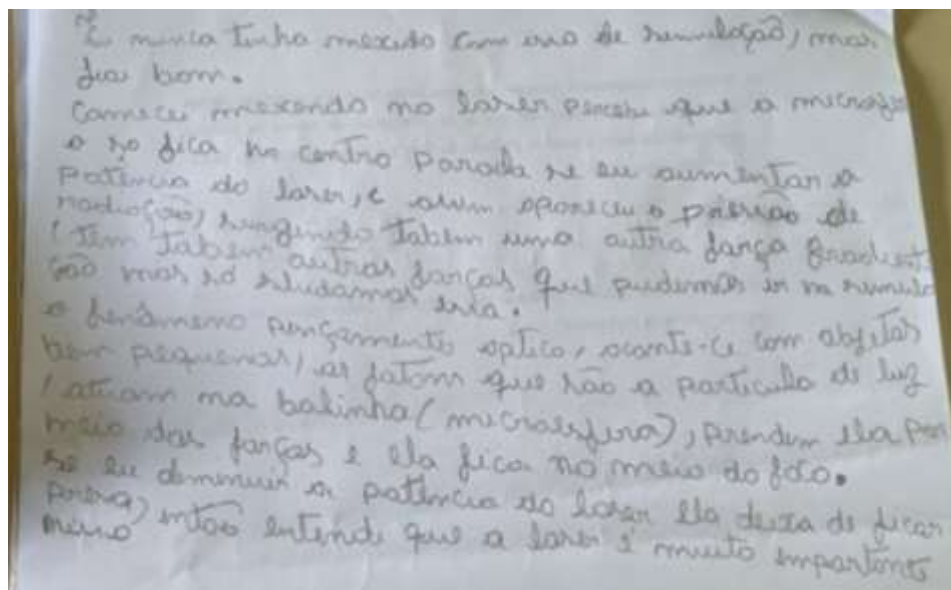 É nunca tinha mexido com uso de simulação, mas
foi bom.
Comecei mexendo no laser percebi que a microesfe
a só fica no centro parada se eu aumentar a
potência do laser, e assim apareceu o pressão de
radia(ção), surgindo tabem uma outra força gradient
(tem tabem outras forças que pudemos ver na simula
ção mas só estudamos esta.
o fenômeno pençamento optico, acontece com objetos
bem pequenos, os fatons que são a particula de luz
atuam na balinha (microesfera), prendem ela por
meio das forças e ela fica no meio do foco.
se eu demenuir a patência do laser ela deixa de ficar
presa, então entendi que a laser é muito emportante